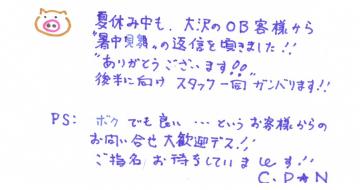 夏休み中も、大沢のOB客様から
"暑中見舞"の返信を頂きました!!
"ありがとうございます!!"
後半に向け スタッフ一同 ガンバります!!
PS: ボクでも良い…というお客様からの
お問い合せ大歓迎デス!!
ご指名お待ちしていまぁす!!